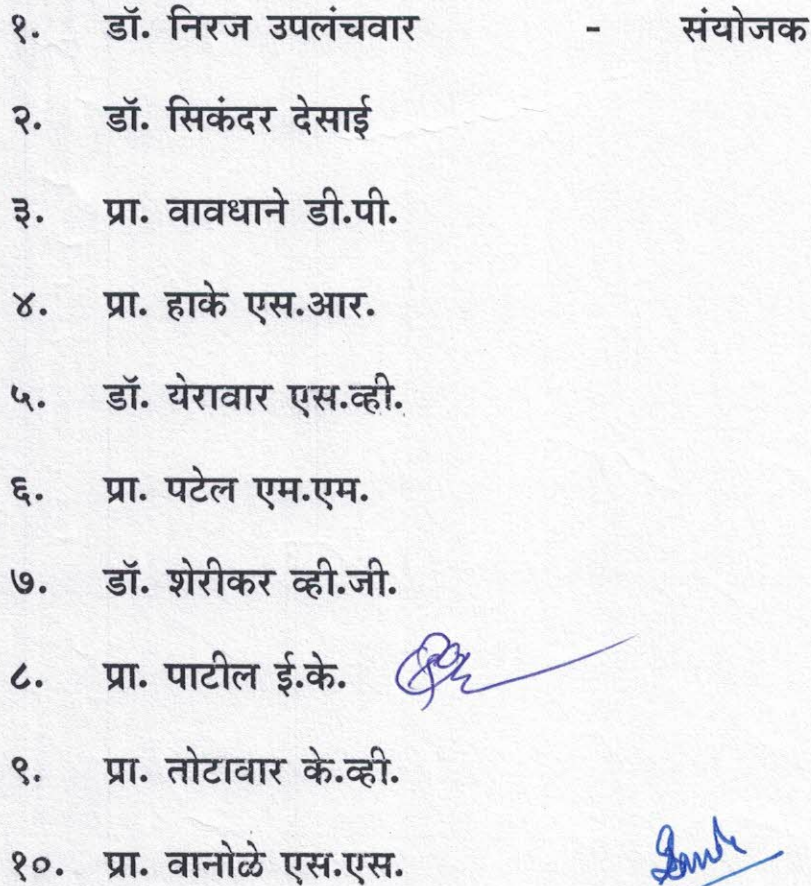 १. डॉ. निरज उपलंचवार - संयोजक
२. डॉ. सिकंदर देसाई
३. प्रा. वावधाने डी.पी.
४. प्रा. हाके एस.आर.
५. डॉ. येरावार एस.व्ही.
६. प्रा. पटेल एम.एम.
७. डॉ. शेरीकर व्ही.जी.
८. प्रा. पाटील ई.के.
९. प्रा. तोटावार के.व्ही.
१०. प्रा. वानोळे एस.एस.